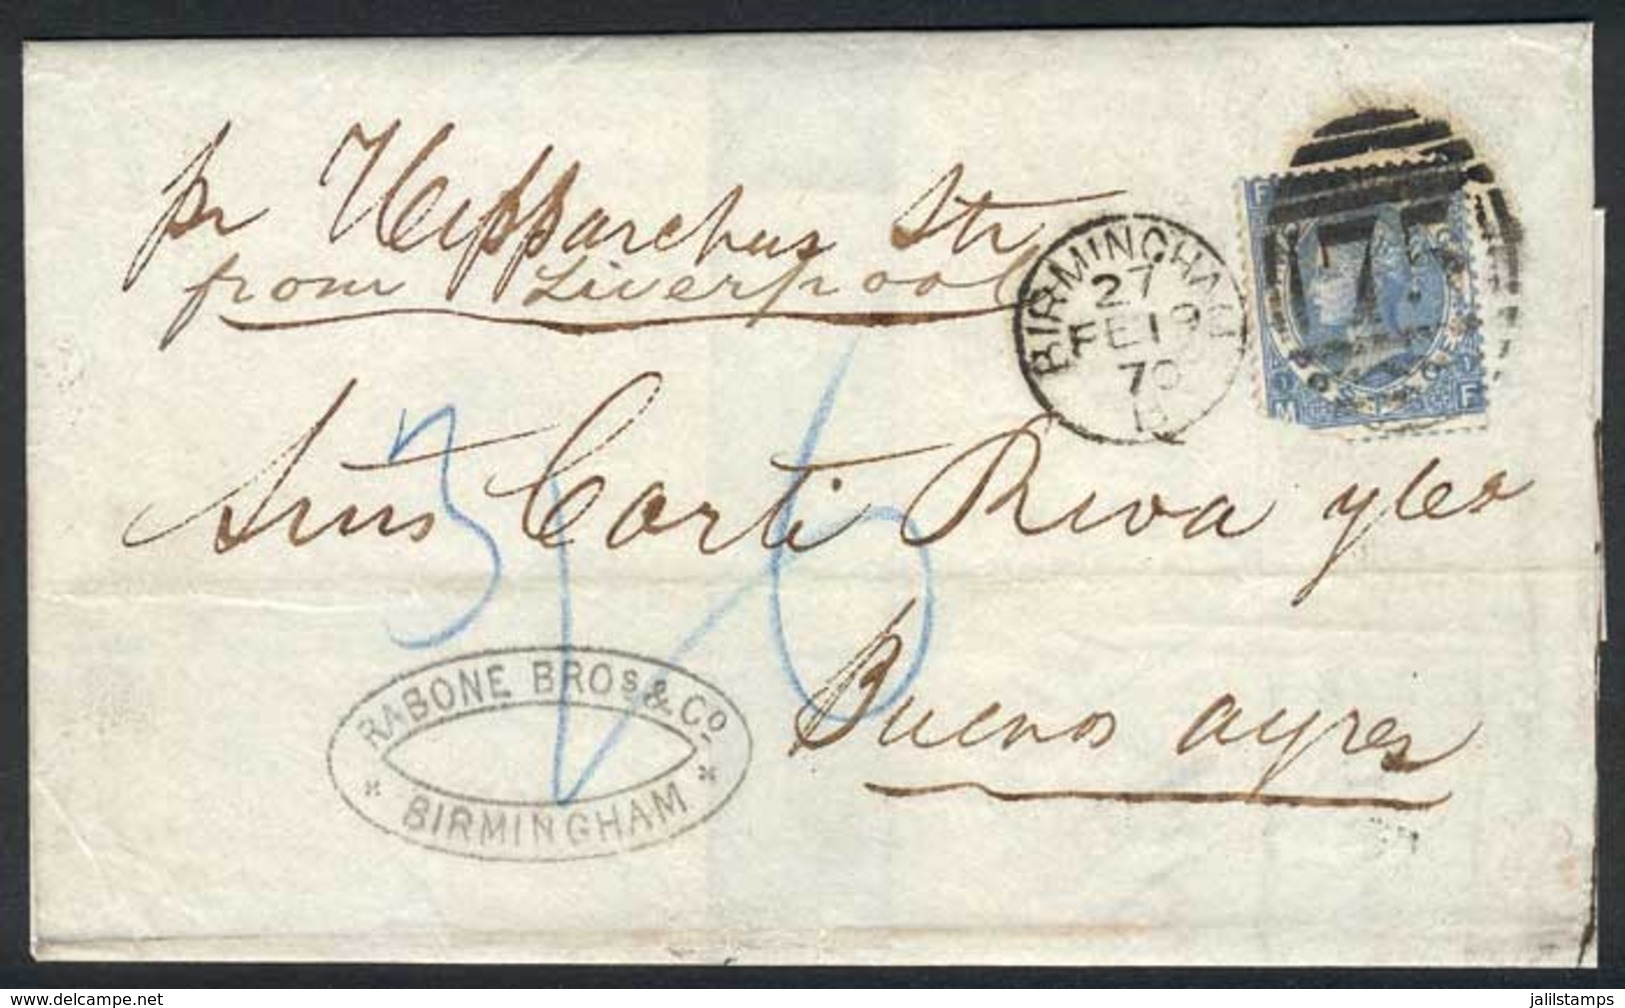 pr Hipparchus Str
from Liverpool
BIRMINGHAM
27
FE 19
70
B
75
F
M F
Srms Corti Riva y Ca
Buenos ayres
RABONE BROS & CO.
BIRMINGHAM
delcampe.net
jalilstamps